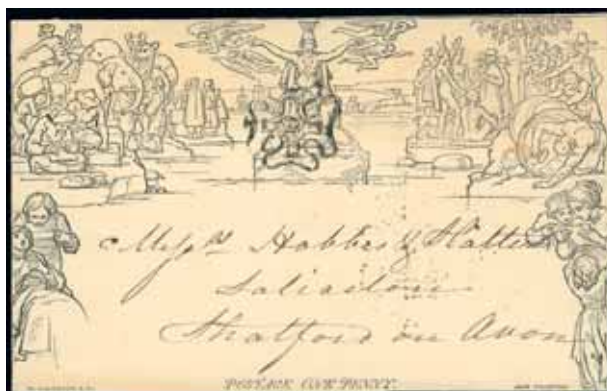 Mess^rs Hobbes & Slatter
Solicitors
Stratford on Avon
POSTAGE ONE PENNY.